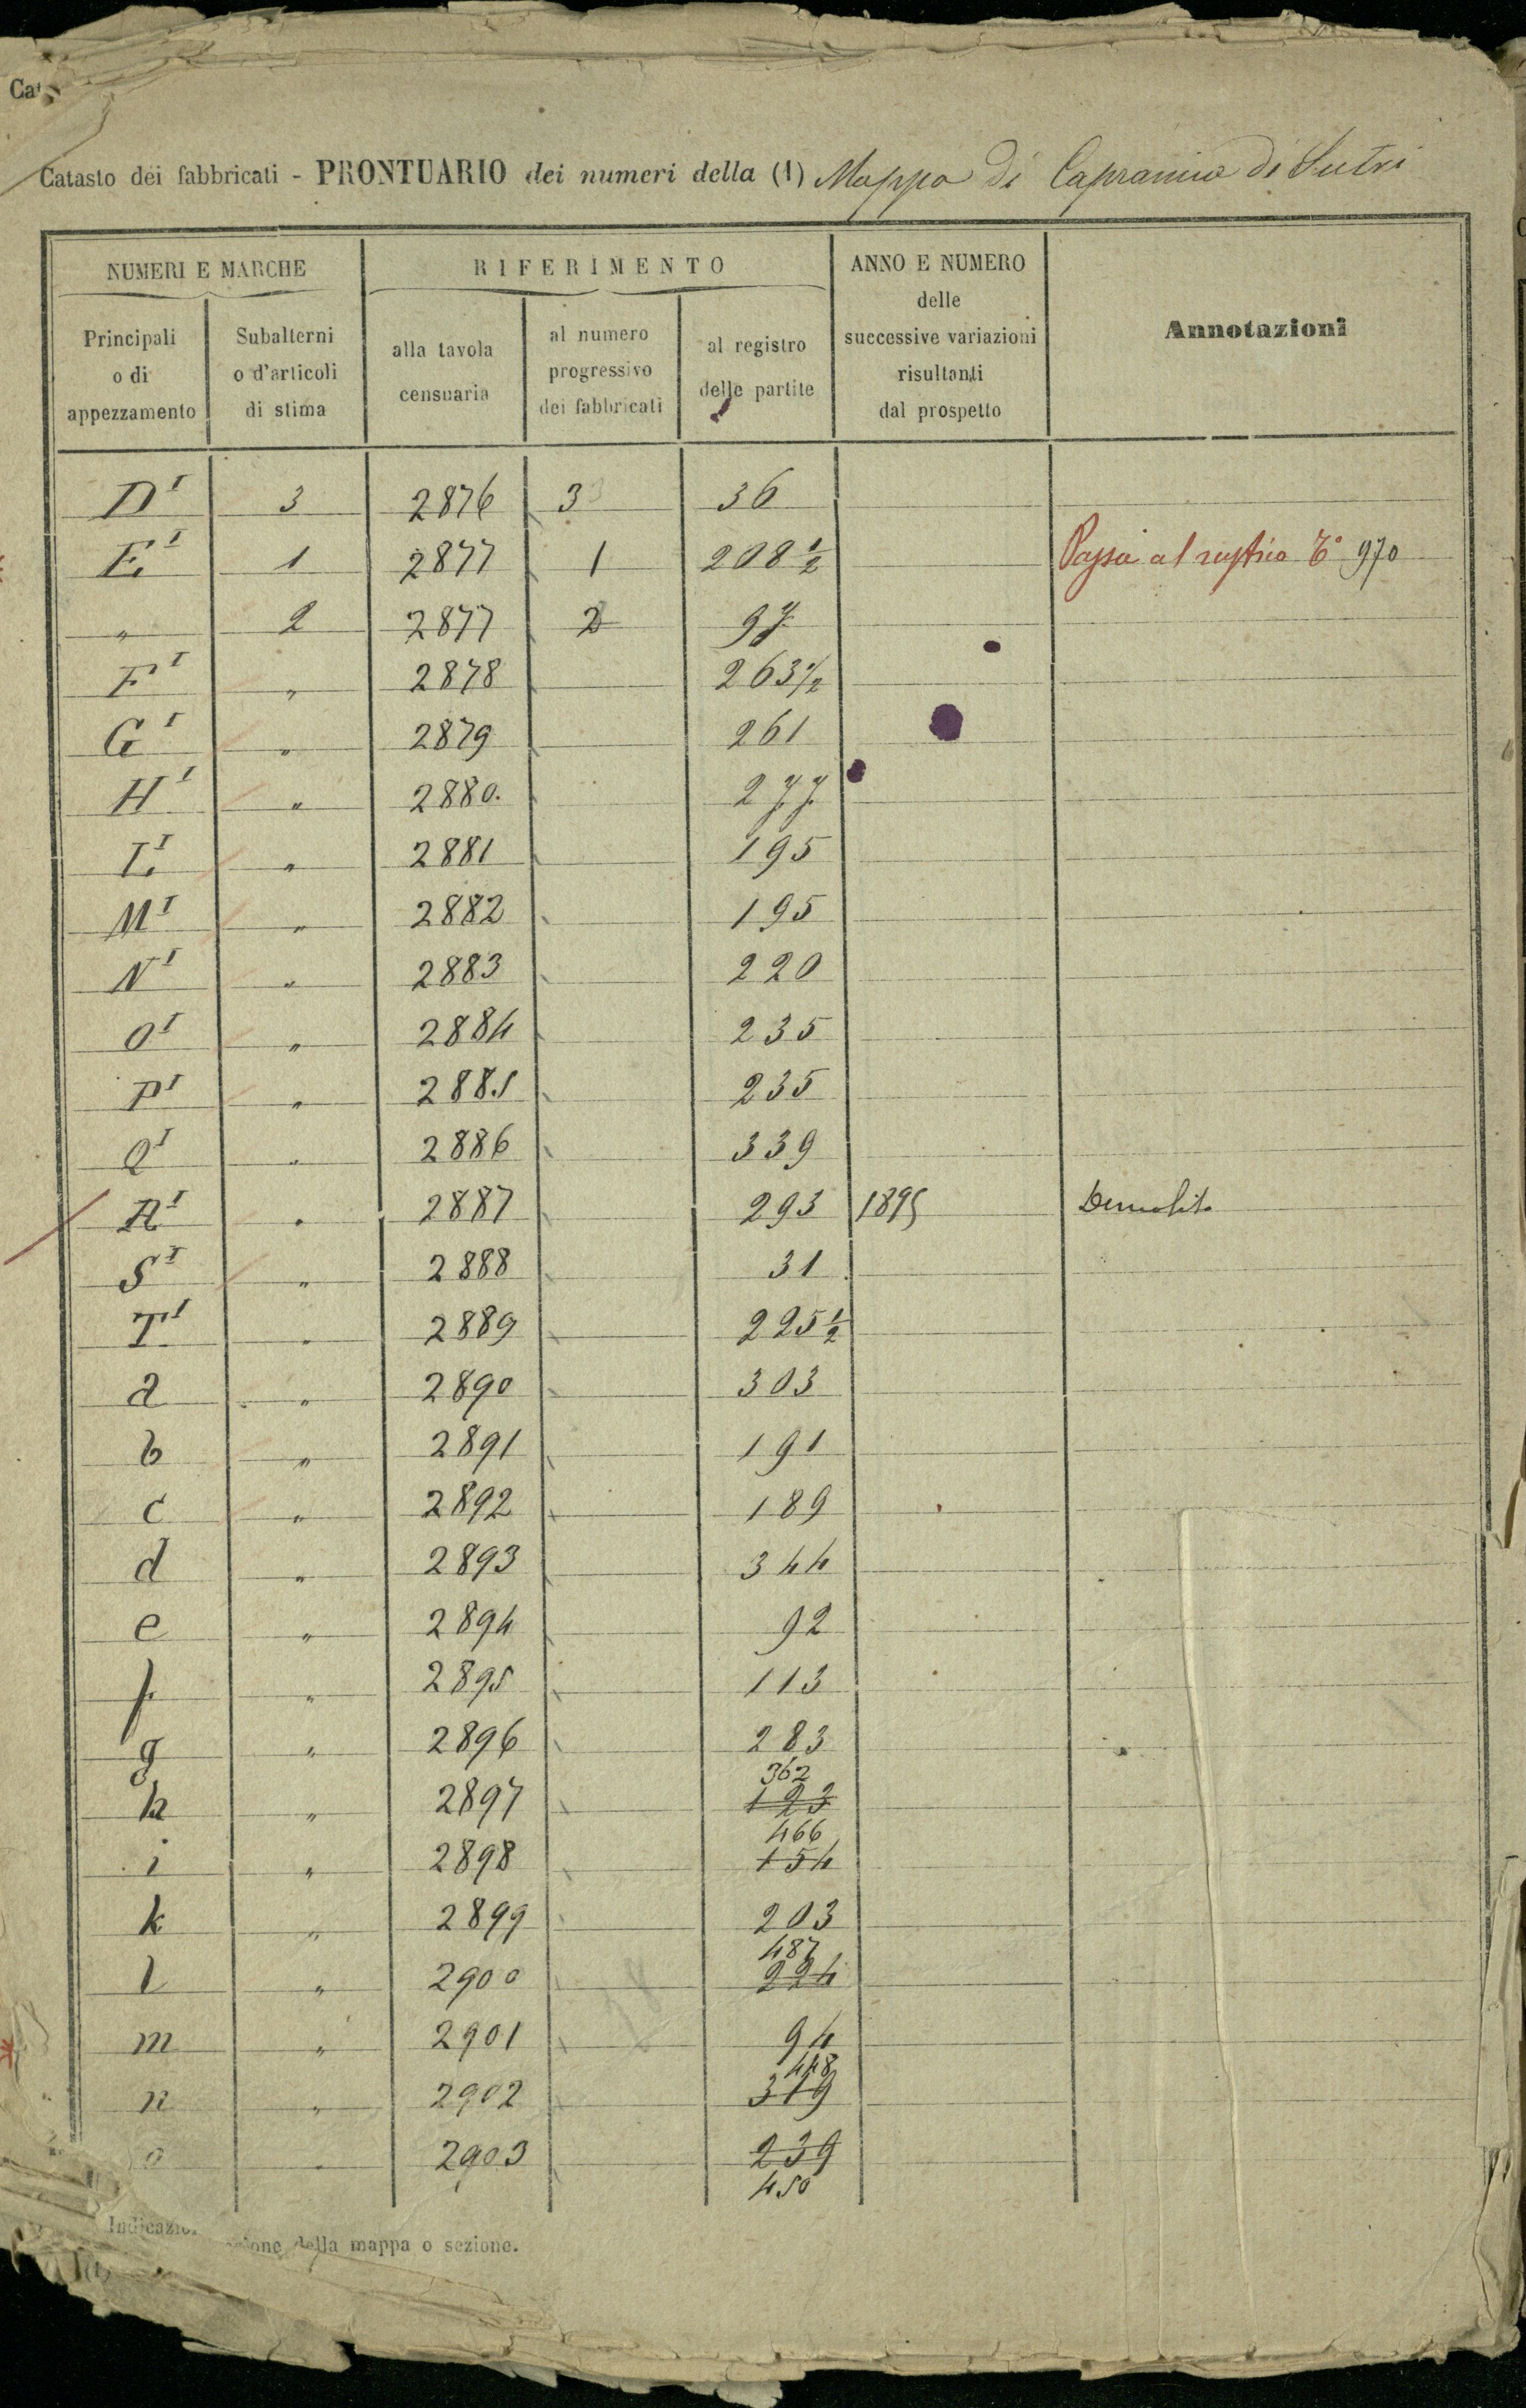 Catasto dei fabbricati - PRONTUARIO dei numeri della (1) Mappa di Capranica di Sutri
NUMERI E MARCHE RIFERIMENTO ANNO E NUMERO delle successive variazioni risultanti dal prospetto Annotazioni
Principali o di appezzamento Subalterni o d'articoli di stima alla tavola censuaria al numero progressivo dei fabbricati al registro delle partite
D I 3 2876 3 36
E I 1 2877 1 208 1/2 Passa al rustico 970
" 2 2877 2 97
F I " 2878 263 1/2
G I " 2879 261
H I " 2880. 277
L I " 2881 195
M I " 2882 195
N I " 2883 220
O I " 2884 235
P I " 2885 235
Q I " 2886 339
R I " 2887 293 1895 Demolito
S I " 2888 31
T I " 2889 225 1/2
a " 2890 303
b " 2891 191
c " 2892 189
d " 2893 344
e " 2894 92
f " 2895 113
g " 2896 283
362
h " 2897 123
466
i " 2898 154
k " 2899 203
487
l " 2900 224
m " 2901 94
448
n " 2902 319
o " 2903 239
450
della mappa o sezione.